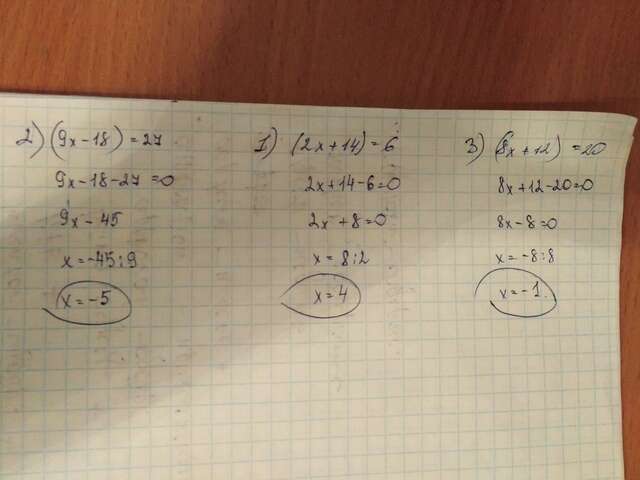 2) (9x-18) = 27
9x-18-27 =0
9x - 45
x = -45:9
x = -5
1) (2x+14) = 6
2x+14-6=0
2x +8=0
x = 8:2
x = 4
3) (8x+12) = 20
8x+12-20=0
8x-8=0
x = -8:8
x = -1.